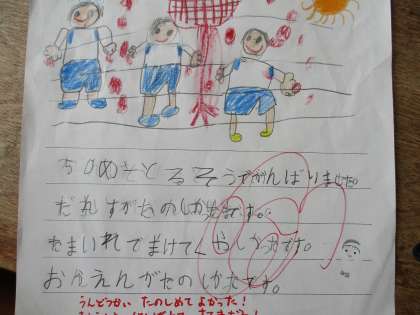 50めそとるそうでがんばりました
だれすがたのしかたです。
たまいれでまけてくやしかたです。
おうえんがたのしかたです。
うんどうかい たのしめて よかった！